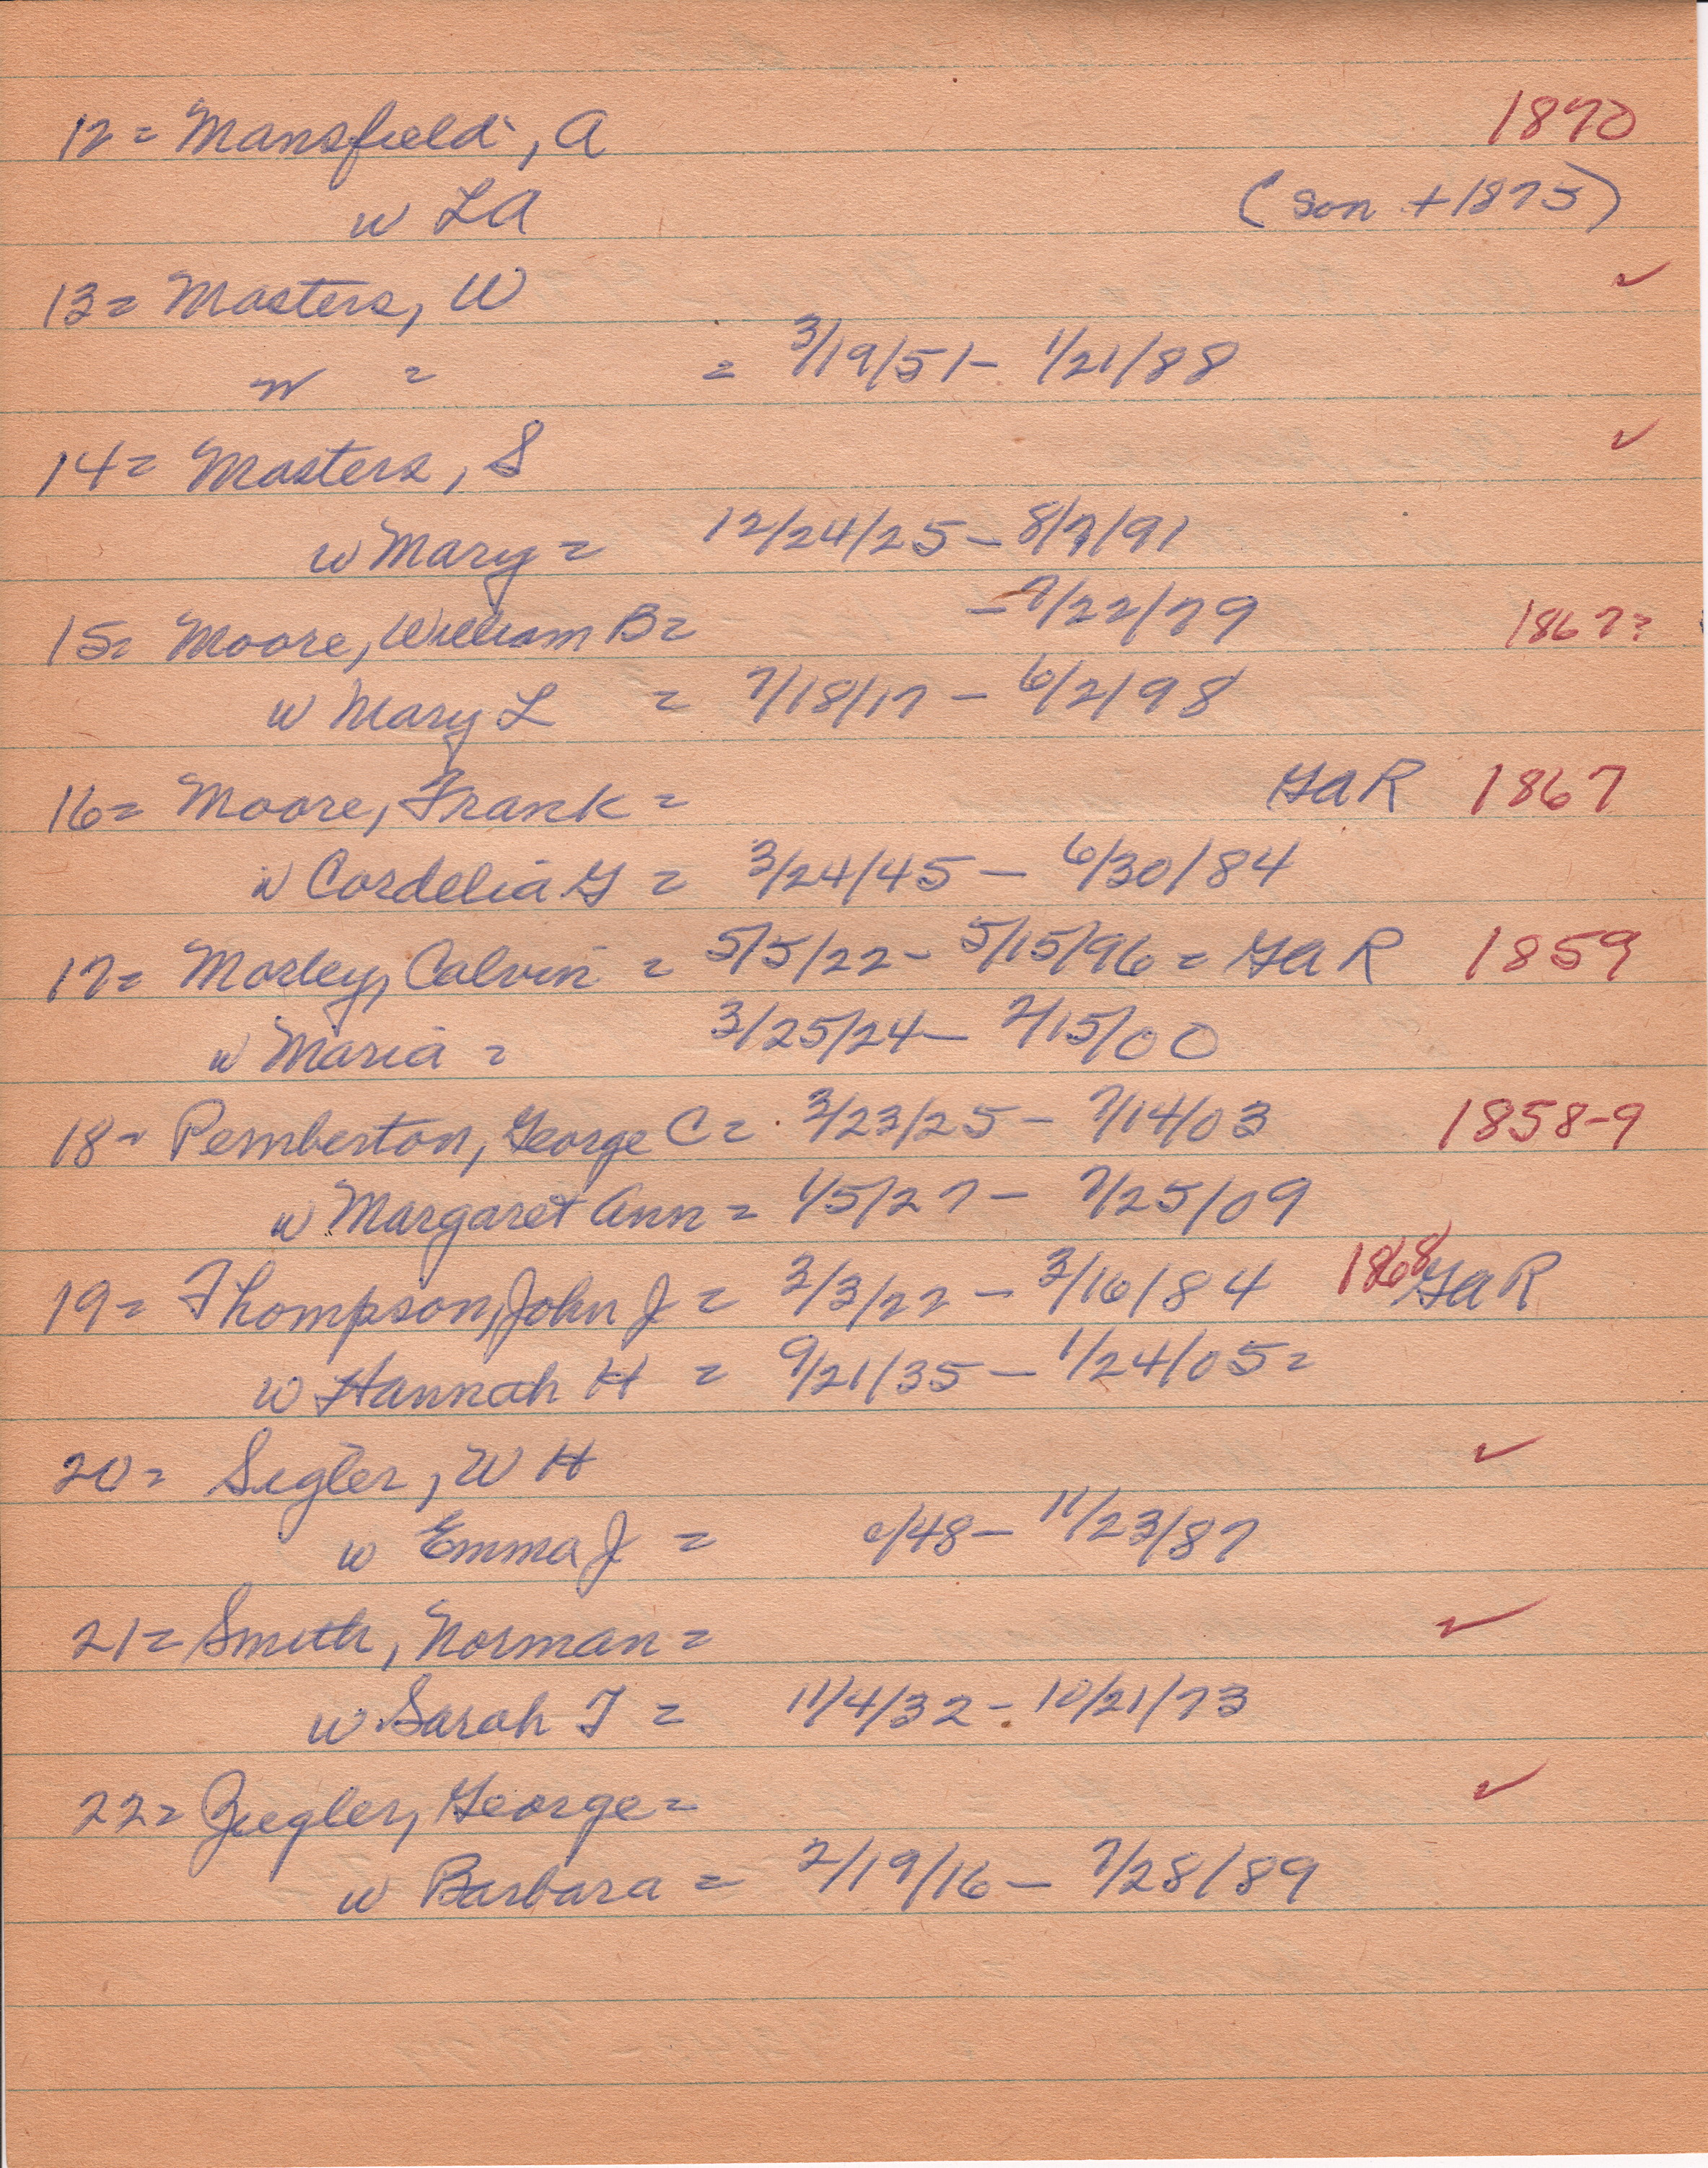 12 = Mansfield, A 1870
w LA (son +1875)
13 = Masters, W ✓
w = = 3/19/51 - 1/21/88
14 = Masters, S ✓
w Mary = 12/24/25 - 8/7/91
15 = Moore, William B = - 7/22/79 1867?
w Mary L = 7/18/17 - 6/2/98
16 = Moore, Frank = GAR 1867
w Cordelia G = 3/24/45 - 6/30/84
17 = Morley, Calvin = 5/5/22 - 5/15/96 = GAR 1859
w Maria = 3/25/24 - 2/15/00
18 = Pemberton, George C = 3/23/25 - 7/14/03 1858-9
w Margaret Ann = 1/5/27 - 7/25/09
19 = Thompson, John J = 3/3/22 - 3/16/84 1868 GAR
w Hannah H = 9/21/35 - 1/24/05 =
20 = Sigler, W H ✓
w Emma J = c/48 - 11/23/87
21 = Smith, Norman = ✓
w Sarah T = 11/4/32 - 10/21/73
22 = Ziegler, George = ✓
w Barbara = 2/19/16 - 7/28/89